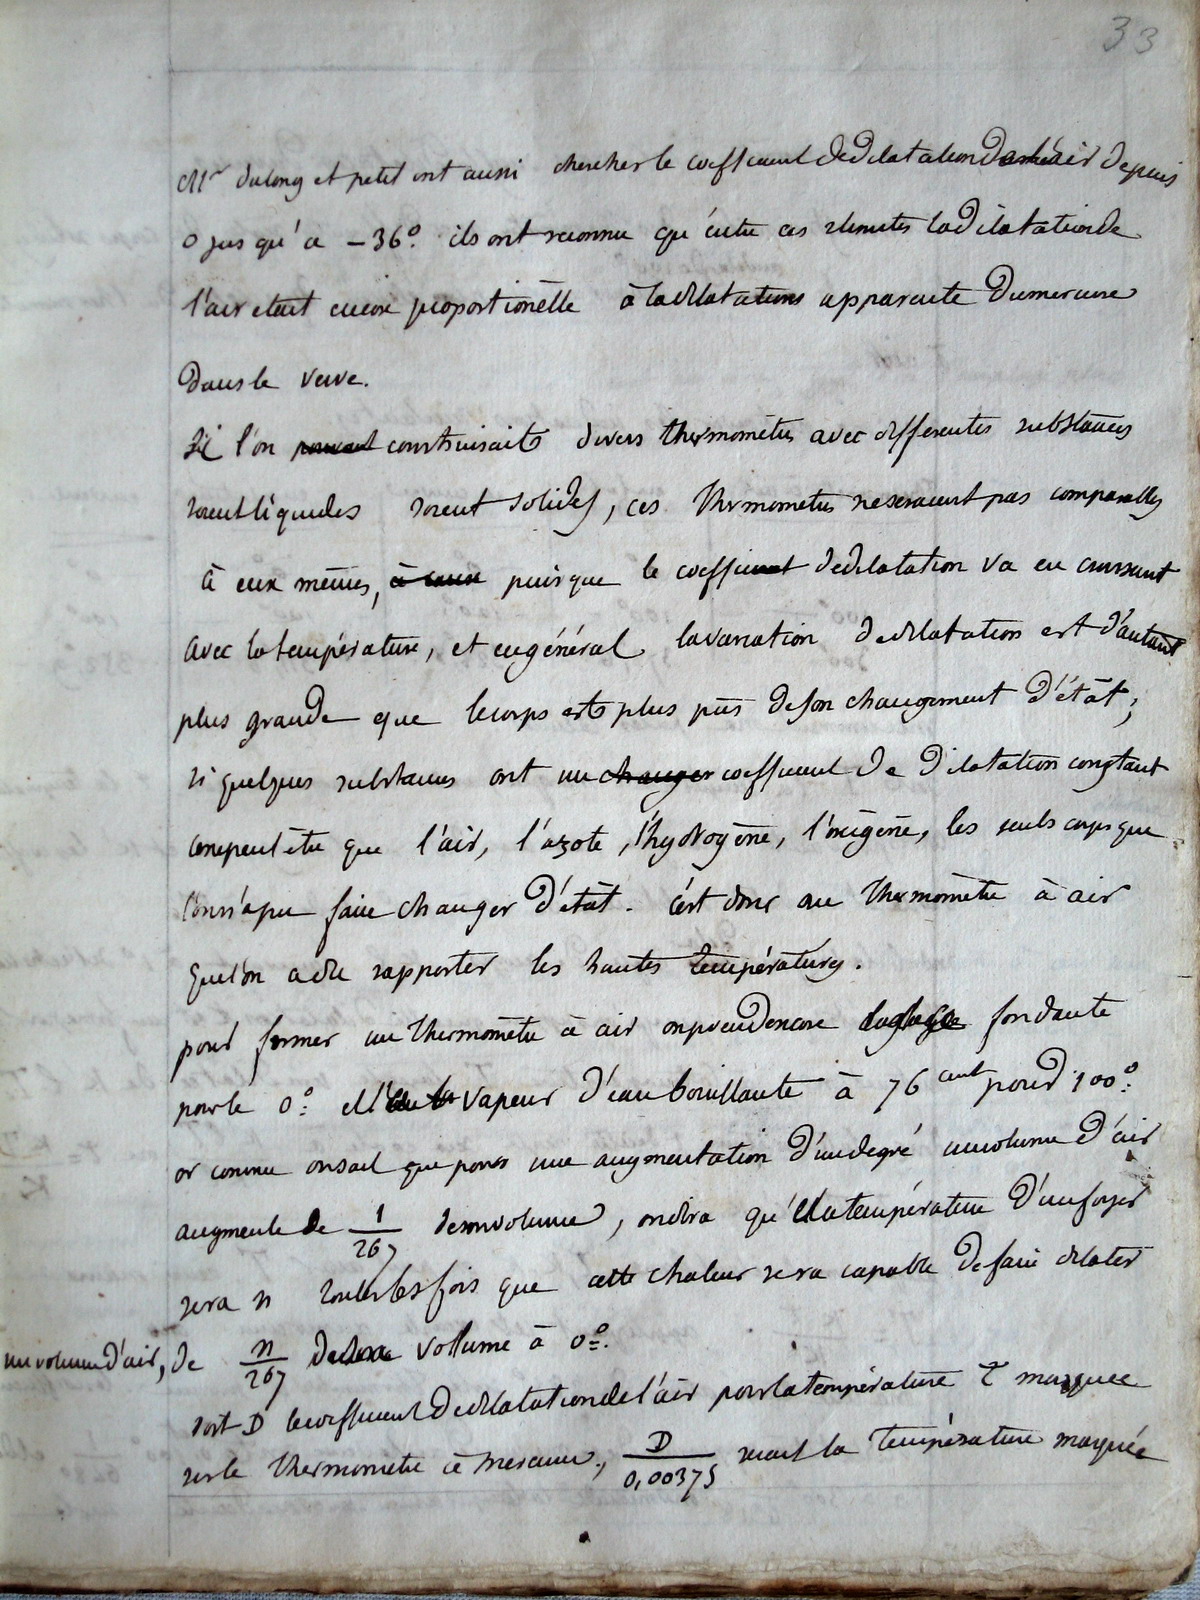 33
Mr dulong et petit ont aussi chercher le coefficient de dilatation de l'air depuis
0 jus qu'a -36°. ils ont reconnu qu'entre ces limites la dilatation de
l'air etait encore proportionelle à la dilatations apparente du mercure
dans le verre.
Si l'on pouvait construisait divers thermomètres avec differentes substances
soient liquides soient solides, ces thermometres ne seraient pas comparables
à eux mêmes, à cause puis que le coefficient de dilatation va en croissant
avec la température, et en général la variation de dilatation est d'autant
plus grande que le corps est plus près de son changement d'état;
si quelques substances ont un changer coefficient de dilatation constant
ce ne peut être que l'air, l'azote, l'hydrogène, l'oxigène, les seuls corps que
l'on n'a pu faire changer d'état. c'est donc au thermomètre à air
que l'on a du rapporter les hautes températures.
pour former un thermomètre à air on prend encore la glace fondante
pour le 0°. et l'eau la vapeur d'eau bouillante à 76 cent pour 100°.
or comme on sait que pour une augmentation d'un degré un volume d'air
augmente de 1/267 de son volume, on dira qu'el la température d'un foyer
sera n toutes les fois que cette chaleur sera capable de faire dilater
un volume d'air, de n/267 de son vollume à 0°.
soit D le coefficient de dilatation de l'air pour la température T marquee
sur le thermometre à mercure, D/0,00375 serait la température marquée